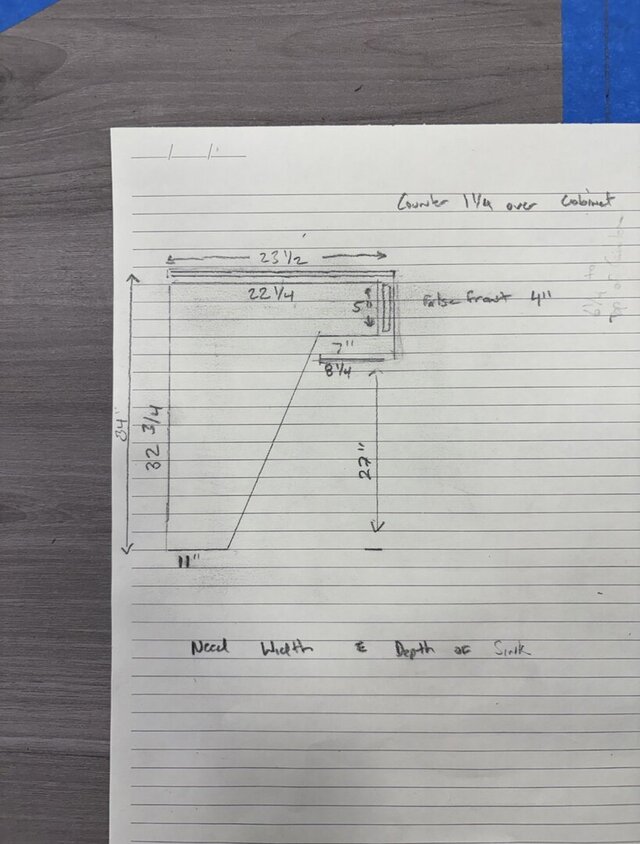 Counter 1 1/4 over Cabinet
23 1/2
22 1/4
5"
False Front 4"
7"
8 1/4
34"
32 3/4
27"
11"
Need Width & Depth of Sink